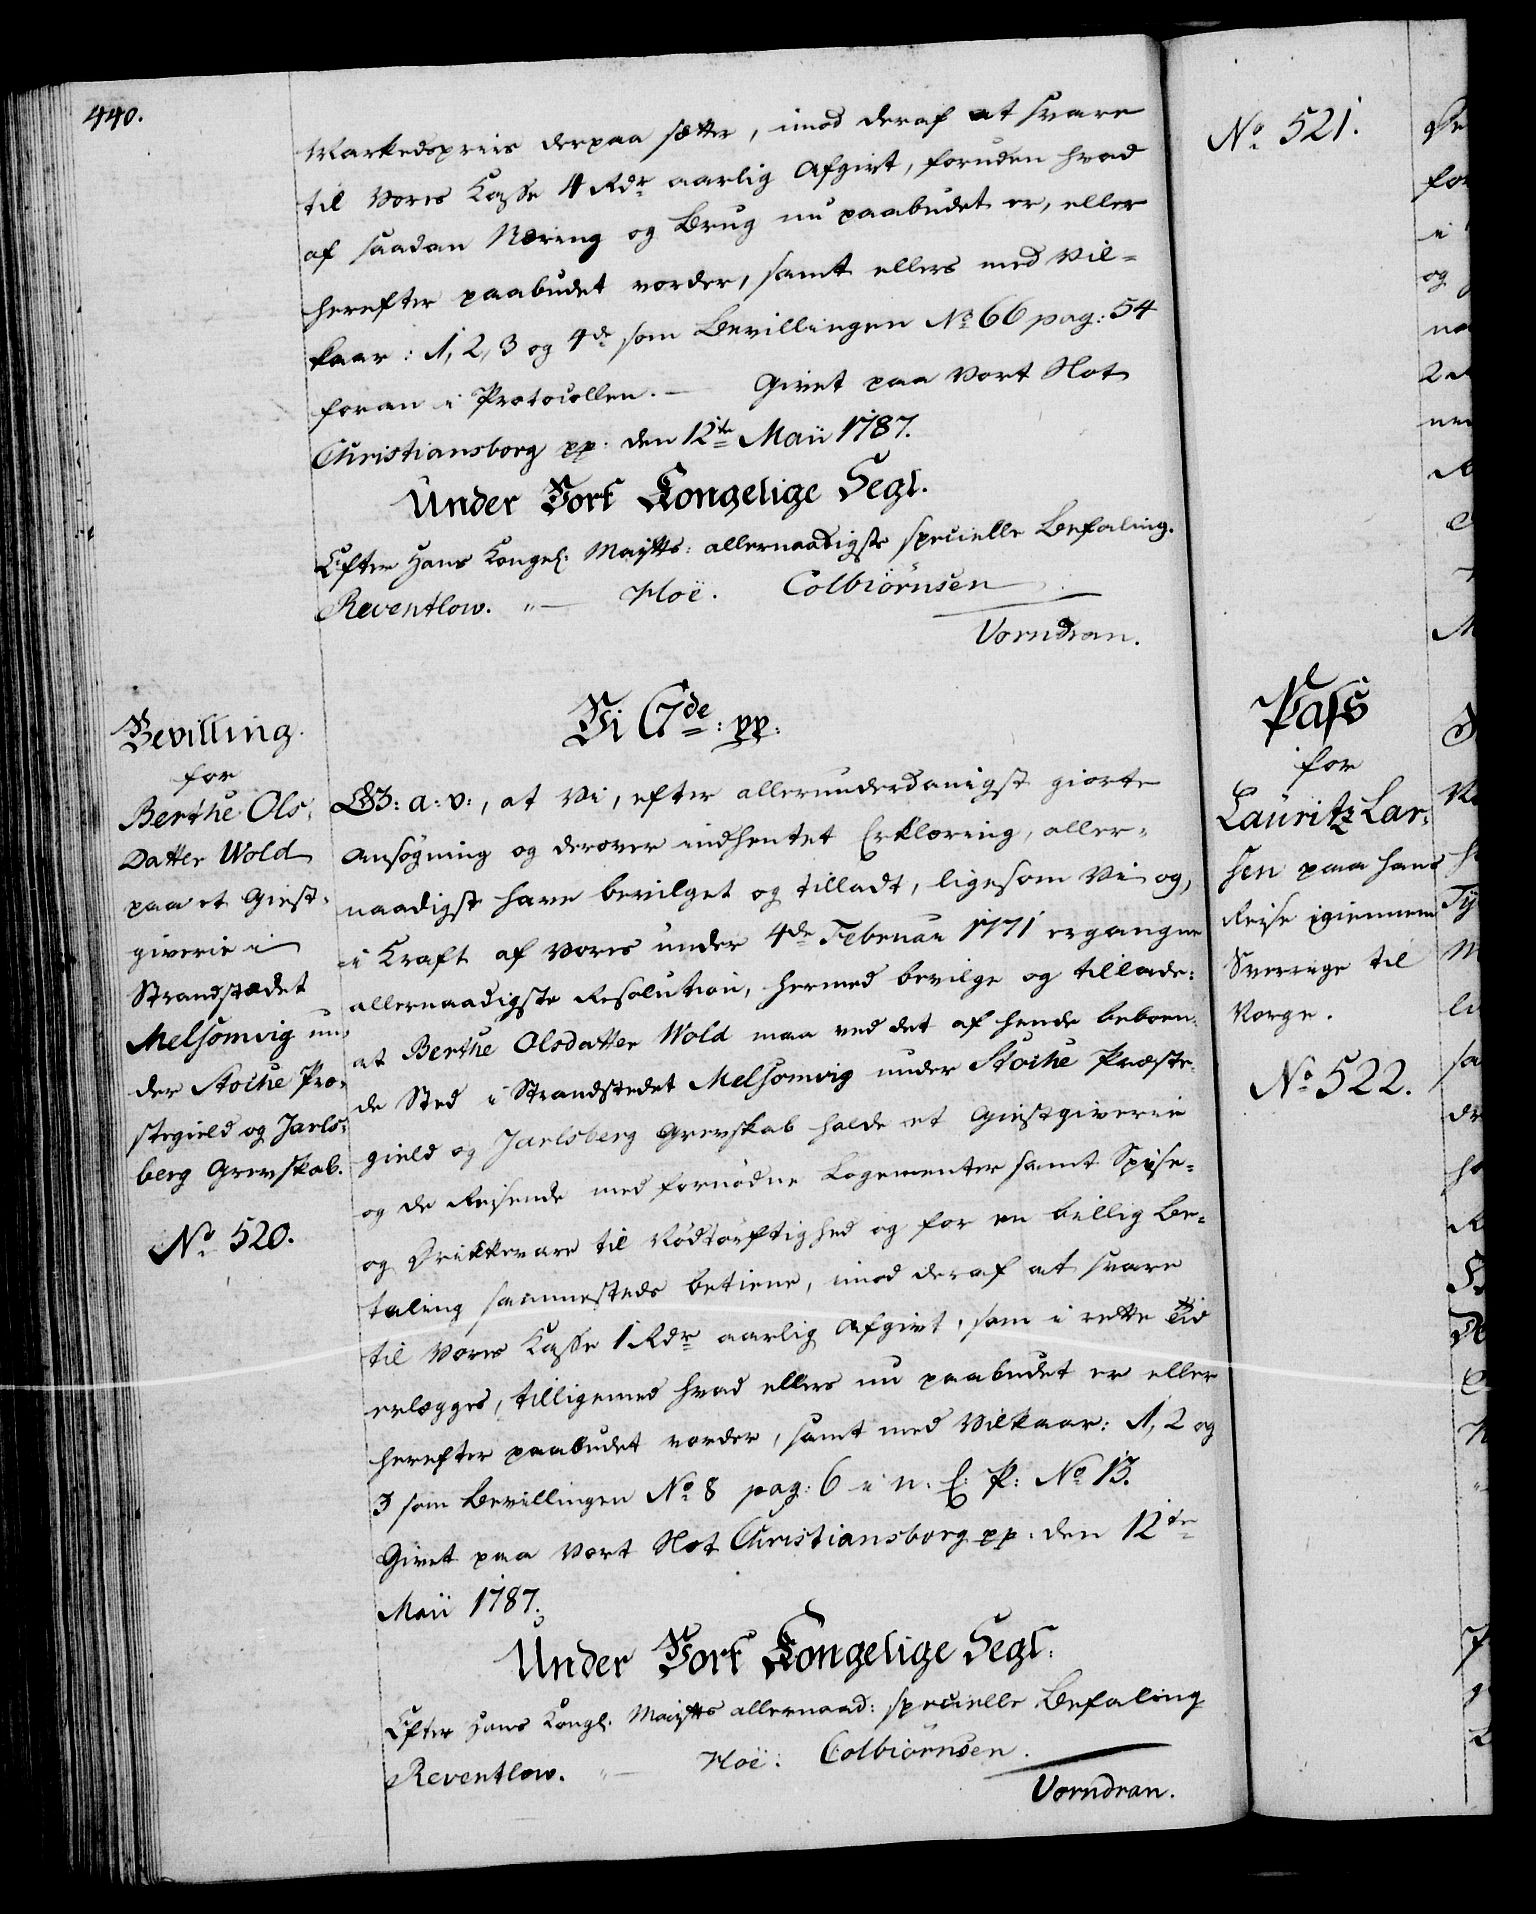 440.
Markedspriis derpaa sætter, imod deraf at svare
til Vores Kasse 4 Rdr aarlig Afgivt, foruden hvad
af saadan Næring og Brug nu paabudet er, eller
herefter paabudet vorder, samt ellers med Vil-
kaar: 1, 2, 3 og 4de som Bevillingen No 66 pag: 54
foran i Protocollen. — Givet paa Vort Slot
Christiansborg pp: den 12te Maii 1787.
Under Vort Kongelige Segl.
Efter Hans Kongel: Maÿtts: allernaadigste specielle Befaling.
Reventlow. " — Hoë. Colbiörnsen
Vorndran.
Bevilling
for
Berthe Ols-
Datter Wold
paa et Giest-
giverie i
Strandstædet
Melsomvig un-
der Stoche Præ-
stegield og Jarls-
berg Grevskab.
No 520.
Vi C 7de: pp:
G: a: v:, at Vi, efter allerunderdanigst giorte
Ansøgning og derover indhentet Erklæring, aller-
naadigst have bevilget og tilladt, ligesom Vi og,
i Kraft af Vores under 4de Februar 1771 ergangne
allernaadigste Resolution, hermed bevilge og tillade:
at Berthe Olsdatter Wold maa ved det af hende beboen-
de Sted i Strandstedet Melsomvig under Stoche Præste-
gield og Jarlsberg Grevskab holde et Giestgiverie
og de Reisende med fornödne Logementer samt Spise-
og Drikkevare til Nødtørftighed og for en billig Be-
taling sammesteds betiene, imod deraf at svare
til Vores Kasse 1 Rdr aarlig Afgivt, som i rette Tid
erlægges, tilligemed hvad ellers nu paabudet er eller
herefter paabudet vorder, samt med Vilkaar: 1, 2 og
3 som Bevillingen No 8 pag: 6 i n: C: P: No 13.
Givet paa Vort Slot Christiansborg pp: den 12te
Maii 1787.
Under Vort Kongelige Segl:
Efter Hans Kongl: Maiÿtts allernaad: specielle Befaling
Reventlow. " — Hoë: Colbiörnsen.
Vorndran.
No 521.
Pass
for
Lauritz Lar-
sen paa hans
Reise igiennem
Sverrige til
Norge.
No 522.